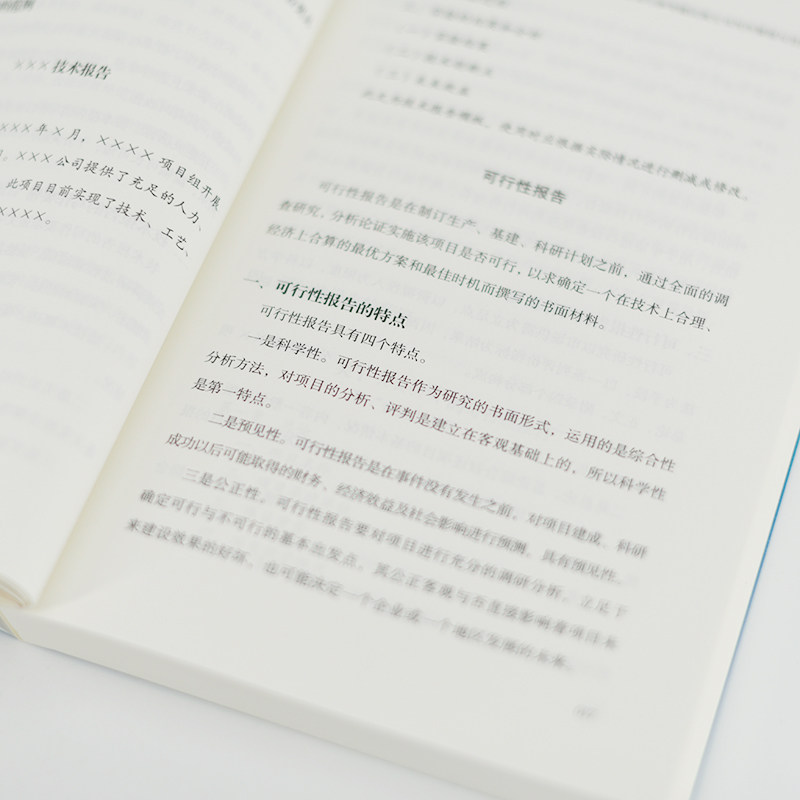 ×××技术报告
×××年×月，××××项目组开展
×××公司提供了充足的人力、
此项目目前实现了技术、工艺、
××××。
使用时应根据实际情况进行删减或修改。
可行性报告
可行性报告是在制订生产、基建、科研计划之前，通过全面的调
查研究，分析论证实施该项目是否可行，以求确定一个在技术上合理、
经济上合算的最优方案和最佳时机而撰写的书面材料。
一、可行性报告的特点
可行性报告具有四个特点。
一是科学性。可行性报告作为研究的书面形式，运用的是综合性
分析方法，对项目的分析、评判是建立在客观基础上的，所以科学性
是第一特点。
二是预见性。可行性报告是在事件没有发生之前，对项目建成、科研
成功以后可能取得的财务、经济效益及社会影响进行预测，具有预见性。
三是公正性。可行性报告要对项目进行充分的调研分析，立足于
确定可行与不可行的基本出发点，其公正客观与否直接影响着项目未
来建设效果的好坏，也可能决定一个企业或一个地区发展的未来。